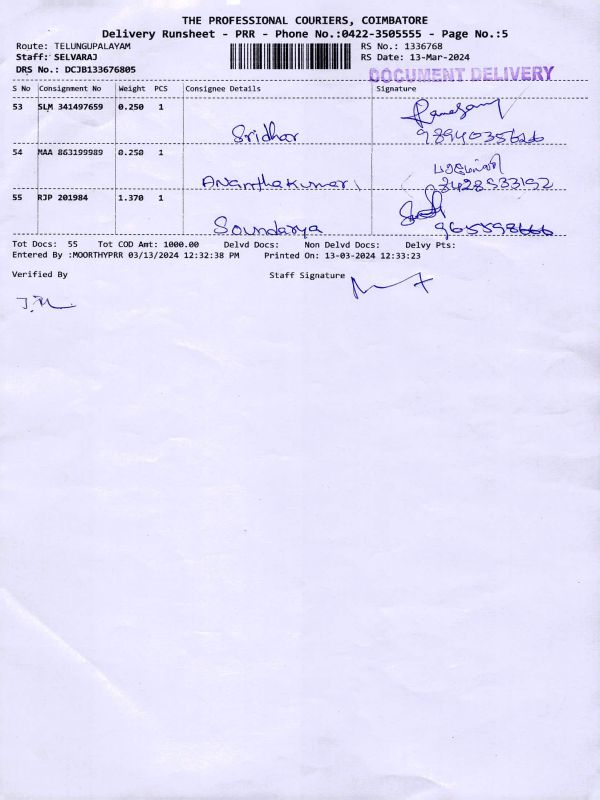 THE PROFESSIONAL COURIERS, COIMBATORE
Delivery Runsheet - PRR - Phone No.:0422-3505555 - Page No.:5
Route: TELUNGUPALAYAM RS No.: 1336768
Staff: SELVARAJ RS Date: 13-Mar-2024
DRS No.: DCJB133676805 DOCUMENT DELIVERY
S No Consignment No Weight PCS Consignee Details Signature
53 SLM 341497659 0.250 1
Sridhar 9894035626
54 MAA 863199989 0.250 1
Ananthakumari
55 RJP 201984 1.370 1
Soundarya
Tot Docs: 55 Tot COD Amt: 1000.00 Delvd Docs: Non Delvd Docs: Delvy Pts:
Entered By :MOORTHYPRR 03/13/2024 12:32:38 PM Printed On: 13-03-2024 12:33:23
Verified By Staff Signature